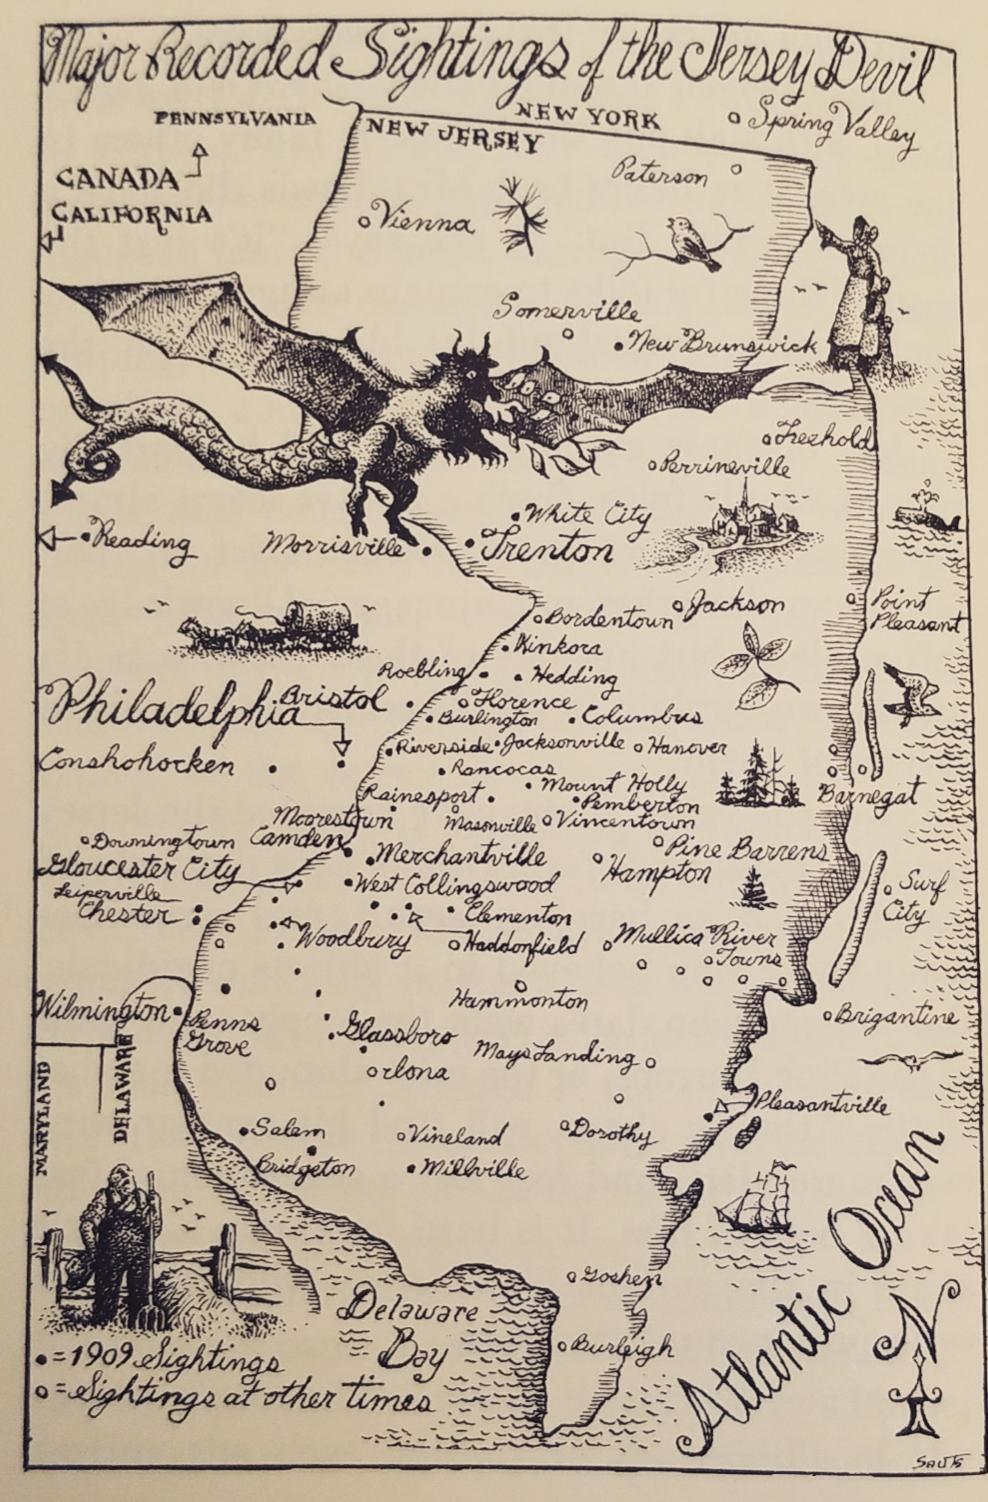 Major Recorded Sightings of the Jersey Devil
PENNSYLVANIA
NEW YORK
NEW JERSEY
Spring Valley
CANADA
CALIFORNIA
Paterson
Vienna
Somerville
New Brunswick
Freehold
Perrineville
White City
Reading
Morrisville
Trenton
Point
Pleasant
Bordentown
Jackson
Kinkora
Roebling
Hedding
Philadelphia
Bristol
Florence
Burlington
Columbus
Riverside
Jacksonville
Hanover
Conshohocken
Rancocas
Mount Holly
Rainesport
Pemberton
Barnegat
Moorestown
Masonville
Vincentown
Downingtown
Camden
Merchantville
Pine Barrens
Gloucester City
Hampton
Leiperville
West Collingswood
Surf
City
Chester
Clementon
Woodbury
Haddonfield
Mullica River
Towns
Wilmington
Hammonton
Penns
Grove
Glassboro
Brigantine
Mays Landing
Iona
MARYLAND
DELAWARE
Pleasantville
Salem
Vineland
Dorothy
Bridgeton
Millville
Atlantic Ocean
Goshen
Delaware
Bay
Burleigh
N
• = 1909 Sightings
o = Sightings at other times